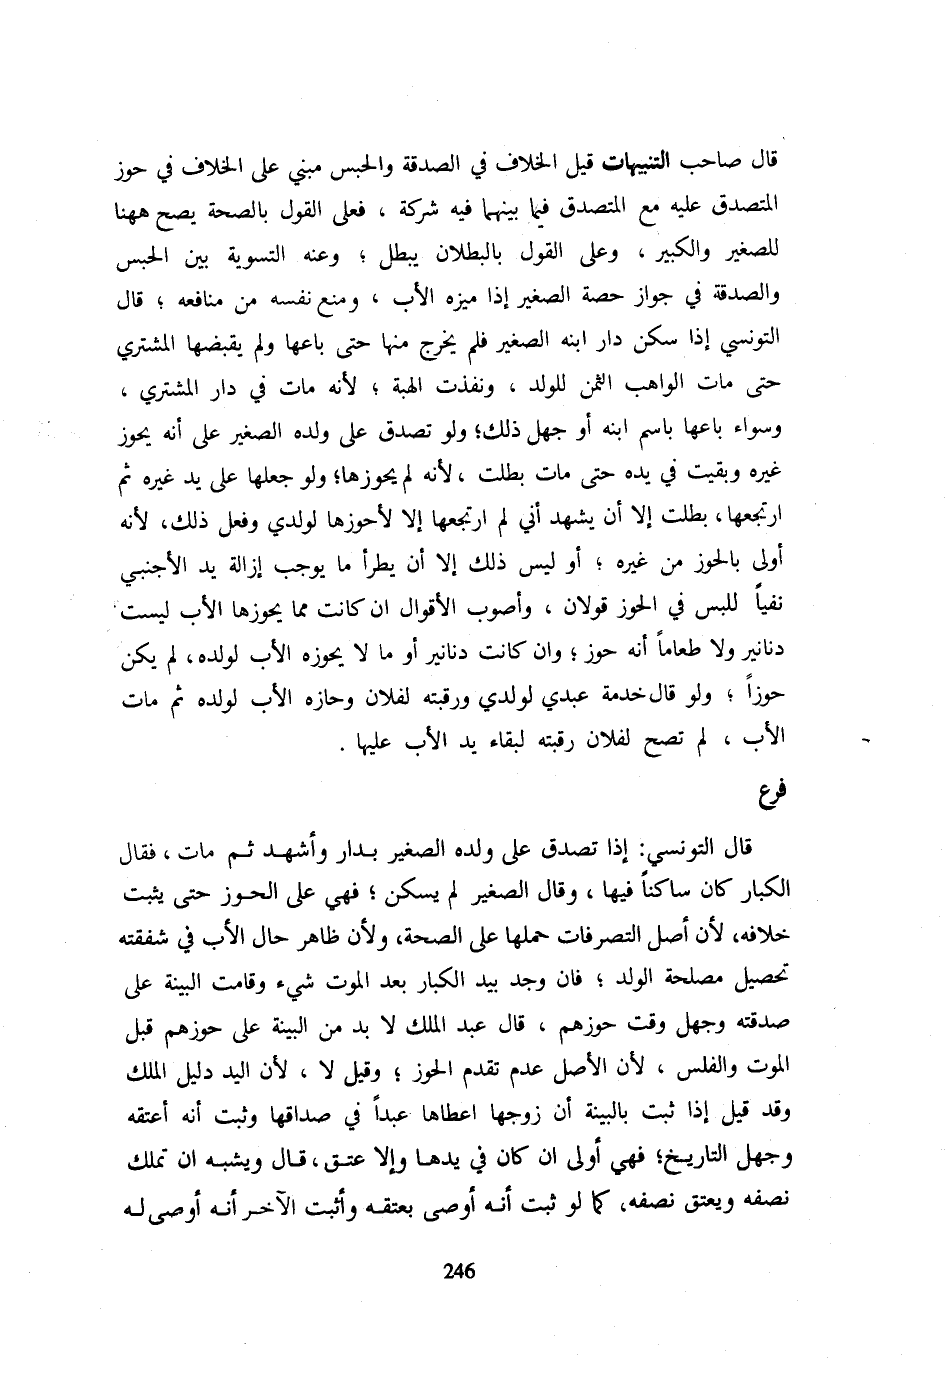 قال صاحب التنبيهات قيل الخلاف في الصدقة والحبس مبني على الخلاف في حوز
المتصدق عليه مع المتصدق فيما بينهما فيه شركة ، فعلى القول بالصحة يصح ههنا
للصغير والكبير ، وعلى القول بالبطلان يبطل ؛ وعنه التسوية بين الحبس
والصدقة في جواز حصة الصغير إذا ميزه الأب ، ومنع نفسه من منافعه ؛ قال
التونسي إذا سكن دار ابنه الصغير فلم يخرج منها حتى باعها ولم يقبضها المشتري
حتى مات الواهب الثمن للولد ، ونفذت الهبة ؛ لأنه مات في دار المشتري ،
وسواء باعها باسم ابنه أو جهل ذلك؛ ولو تصدق على ولده الصغير على أنه يحوز
غيره وبقيت في يده حتى مات بطلت ، لأنه لم يحوزها؛ ولو جعلها على يد غيره ثم
ارتجعها، بطلت إلا أن يشهد أني لم ارتجعها إلا لأحوزها لولدي وفعل ذلك، لأنه
أولى بالحوز من غيره ؛ أو ليس ذلك إلا أن يطرأ ما يوجب إزالة يد الأجنبي
نفياً للبس في الحوز قولان ، وأصوب الأقوال ان كانت مما يحوزها الأب ليست
دنانير ولا طعاماً أنه حوز ؛ وان كانت دنانير أو ما لا يحوزه الأب لولده، لم يكن
حوزاً ؛ ولو قال خدمة عبدي لولدي ورقبته لفلان وحازه الأب لولده ثم مات
الأب ، لم تصح لفلان رقبته لبقاء يد الأب عليها .
فرع
قال التونسي: إذا تصدق على ولده الصغير بدار وأشهد ثم مات ، فقال
الكبار كان ساكناً فيها ، وقال الصغير لم يسكن ؛ فهي على الحوز حتى يثبت
خلافه، لأن أصل التصرفات حملها على الصحة، ولأن ظاهر حال الأب في شفقته
تحصيل مصلحة الولد ؛ فان وجد بيد الكبار بعد الموت شيء وقامت البينة على
صدقته وجهل وقت حوزهم ، قال عبد الملك لا بد من البينة على حوزهم قبل
الموت والفلس ، لأن الأصل عدم تقدم الحوز ؛ وقيل لا ، لأن اليد دليل الملك
وقد قيل إذا ثبت بالبينة أن زوجها اعطاها عبداً في صداقها وثبت أنه أعتقه
وجهل التاريخ؛ فهي أولى ان كان في يدها وإلا عتق، قال ويشبه ان تملك
نصفه ويعتق نصفه، كما لو ثبت أنه أوصى بعتقه وأثبت الآخر أنه أوصى له
246